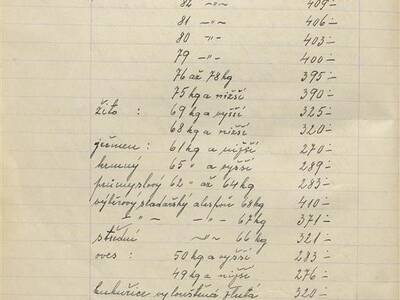 82 -"- 409.-
81 -"- 406.-
80 -"- 403.-
79 -"- 400.-
76 až 78 kg 395.-
75 kg a nižší 390.-
žito : 69 kg a vyšší 325.-
68 kg a nižší 320.-
ječmen : 61 kg a nižší 270.-
krmný 65 " a vyšší 289.-
průmyslový 62 " až 64 kg 283.-
výběrový sladařský alespoň 68 kg 410.-
-"- -"- 67 kg 371.-
střední -"- 66 kg 321.-
oves : 50 kg a vyšší 283.-
49 kg a nižší 276.-
kukuřice vyloužtěná žlutá 320.-